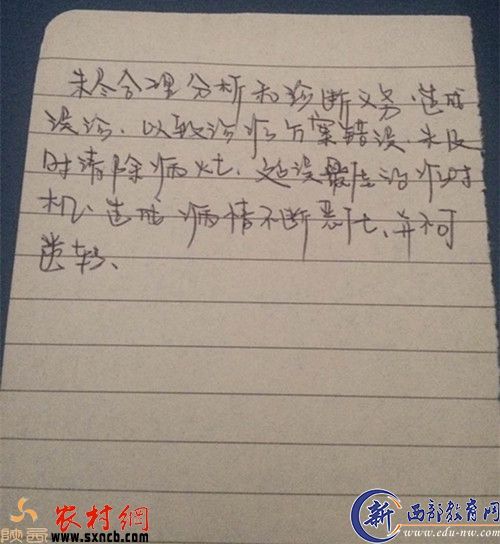 未尽合理分析和诊断义务.造成
误诊、以致治疗方案错误.未及
时清除病灶、延误最佳治疗时
机、造成病情不断恶化、并不可
逆转、
陕西
农村網
www.sxncb.com
新西部教育网
www.edu-nw.com